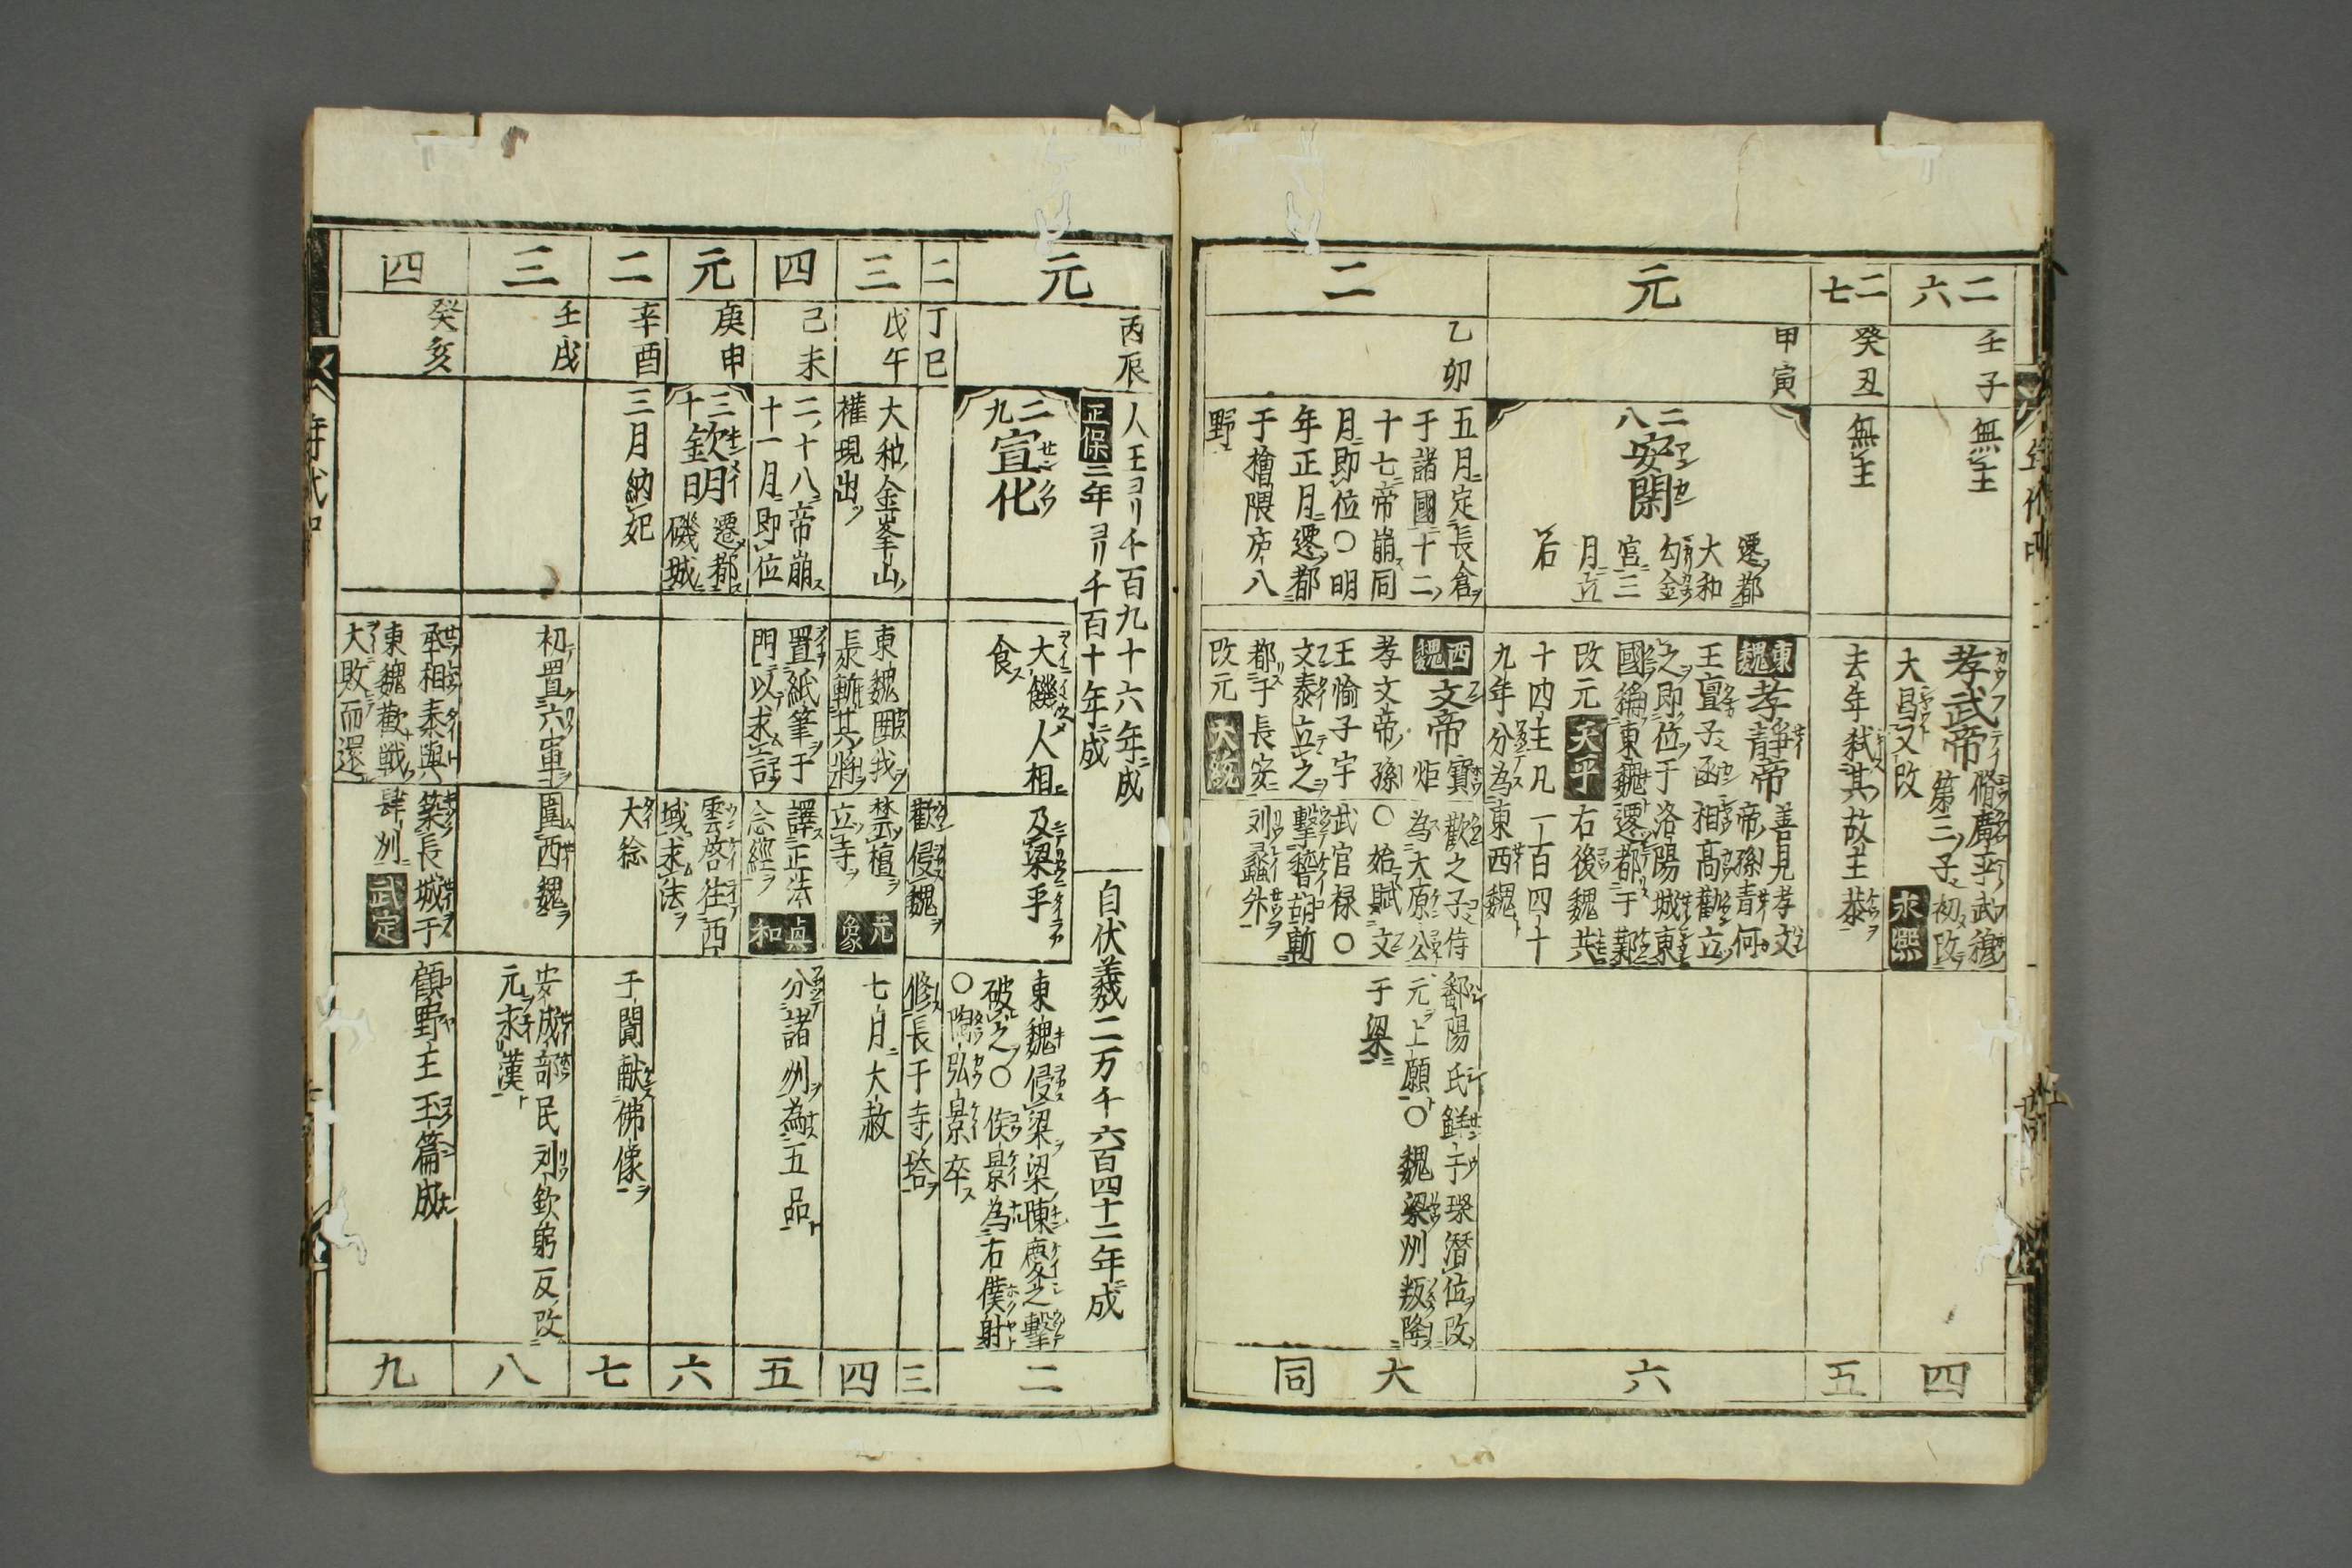 二六
壬子
無主
孝武帝
脩廣平武穆
第三ノ子初改
大昌又改
永熙
四
二七
癸丑
無主
去年弑其故主恭
五
元
甲寅
二八
安閑
遷都
大和
勾金
宮三
月立
后
東魏
孝静帝
善見孝文
帝孫青何
王亶子函相高歡立
之即位于洛陽城東
國稱東魏遷都于鄴
改元
天平
右後魏共
十四主凡一百四十
九年分為東西魏
六
二
乙卯
五月定長倉
于諸國十二
十七帝崩同
月即位〇明
年正月遷都
于檜隈廬八
野
西魏
文帝
寶炬
孝文帝孫
王愉子宇
文泰立之
都于長安
改元
大統
歡之子侍
為大原公
〇始賦文
武官禄〇
擊稽胡斬
刘蠡外
鄱陽氏鮮于琛潜位改
元上願〇魏梁州叛降
于梁
大同
元
丙辰
人王ヨリ千百九十六年成
正保三年ヨリ千百十年成
自伏羲二万千六百四十二年成
二九
宣化
大饑人相
食
及梁平
東魏侵梁梁陳慶之擊
破之〇侯景為右僕射
〇陶弘景卒
二
二
丁巳
歡侵魏
修長干寺塔
三
三
戊午
大和金峯山
權現出
東魏囲我
長槊斬其將
禁檀
立寺
元象
七月大赦
四
四
己未
二十八帝崩
十一月即位
置紙筆于
門以求言
譯正法
念經
真和
分諸州為五品
五
元
庚申
三十
欽明
遷都
磯城
雲啓往西
域求法
六
二
辛酉
三月納妃
大徐
于闐献佛像
七
三
壬戌
初置六軍
圍西魏
安成部民刘欽躬反改
元永漢
八
四
癸亥
承相泰與
東魏歡戦
大敗而還
築長城于
肆州
武定
顧野王玉篇成
九